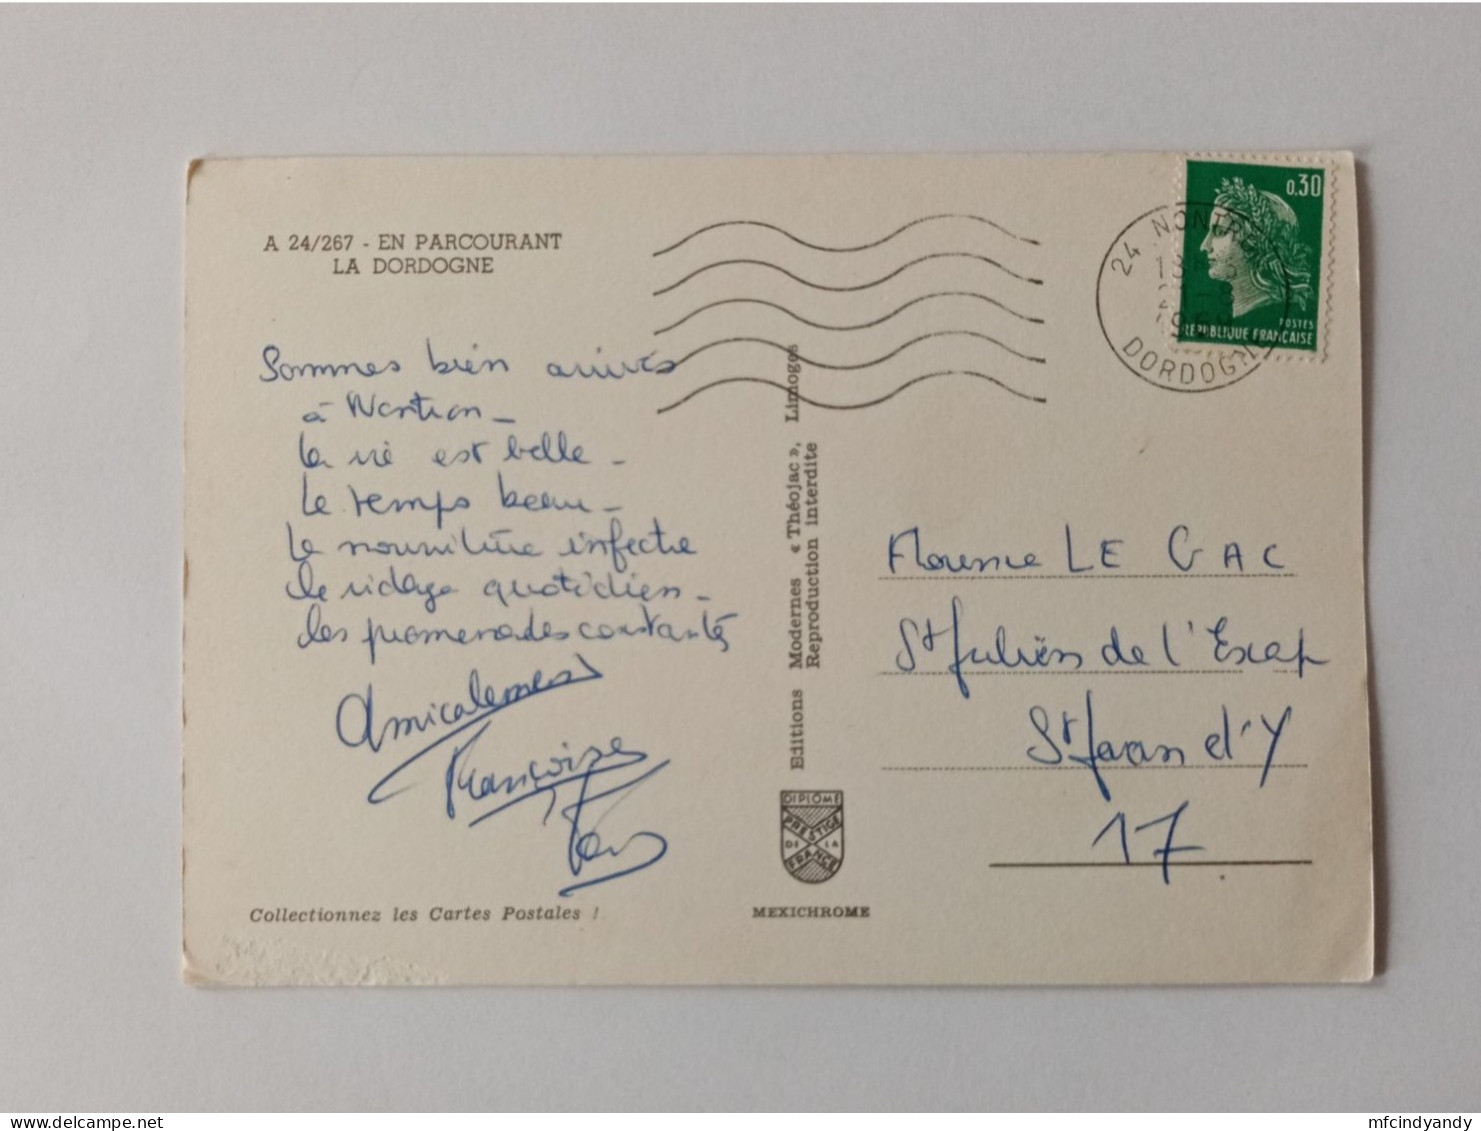 A 24/267 - EN PARCOURANT
LA DORDOGNE
Sommes bien arrivés
à Nontron -
la vie est belle -
Le temps beau -
la nourriture infecte
le vidage quotidien -
les promenades constantes
Amicalement
Françoise
Collectionnez les Cartes Postales !
Editions Modernes « Théojac », Limoges
Reproduction interdite
DIPLOME
PRESTIGE
DE LA
FRANCE
MEXICHROME
0.30
POSTES
REPUBLIQUE FRANÇAISE
24 NONTRON
DORDOGNE
Florence LE GAC
St Julien de l'Escap
St Jean d'Y
17
mfcindyandy